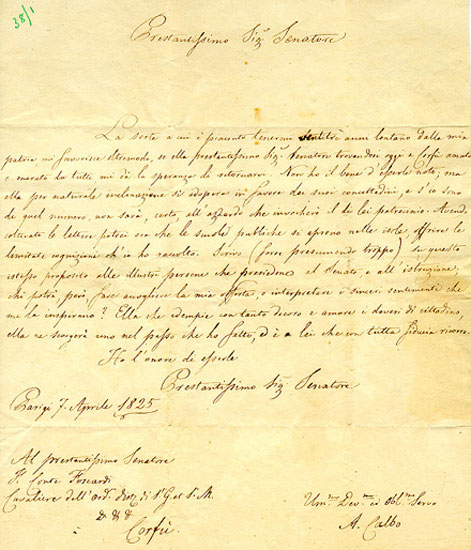 38/1
Prestantissimo Sig.r Senatore
La sorte a cui è piaciuto tenermi ventitrè anni lontano dalla mia
patria mi favorisce oltremodo, se ella prestantissimo Sig.r Senatore trovandosi oggi a Corfù amato
e onorato da tutti mi dà la speranza di ritornarvi. Non ho il bene d'esserle noto, ma
ella per naturale inclinazione si adopera in favore dei suoi concittadini, e s'io sono
di quel numero, non sarà, certo, all' azzardo che invocherò il di lei patrocinio. Avendo
coltivato le lettere potrei ora che le scuole pubbliche si aprono nelle isole offrire le
lievissime cognizioni ch'io ho raccolto. Scrivo (forse presumendo troppo) su questo
istesso proposito alle illustri persone che presiedono al Senato, e all' istruzione;
chi potrà, però, fare accogliere la mia offerta, o interpretare i sinceri sentimenti che
me la inspirano? Ella che adempie con tanto decoro e amore i doveri di cittadino,
ella ne scorgerà uno nel passo che ho fatto, ed è a lei che con tutta fiducia ricorro.
Ho l'onore di esserle
Prestantissimo Sig.r Senatore
Parigi 7. Aprile 1825
Al prestantissimo Senatore
Il Conte Foscardi
Cavaliere dell' ord. di S.G. et S.M.
& & &
Corfù
Um.mo Dev.mo ed obl.mo Servo
A. Calbo